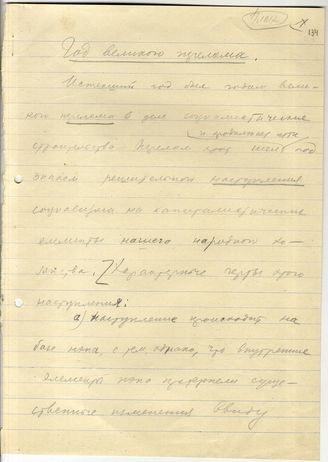 134
Год великого перелома.
Истекший год был годом вели-
кого перелома в деле социалистического
и продолжает идти
строительства Перелом этот шел под
знаком решительного наступления
социализма на капиталистические
элементы нашего народного хо-
зяйства. Характерные черты этого
наступления:
а) наступление происходит на
базе нэпа, с тем, однако, что внутренние
элементы нэпа претерпели суще-
ственные изменения ввиду